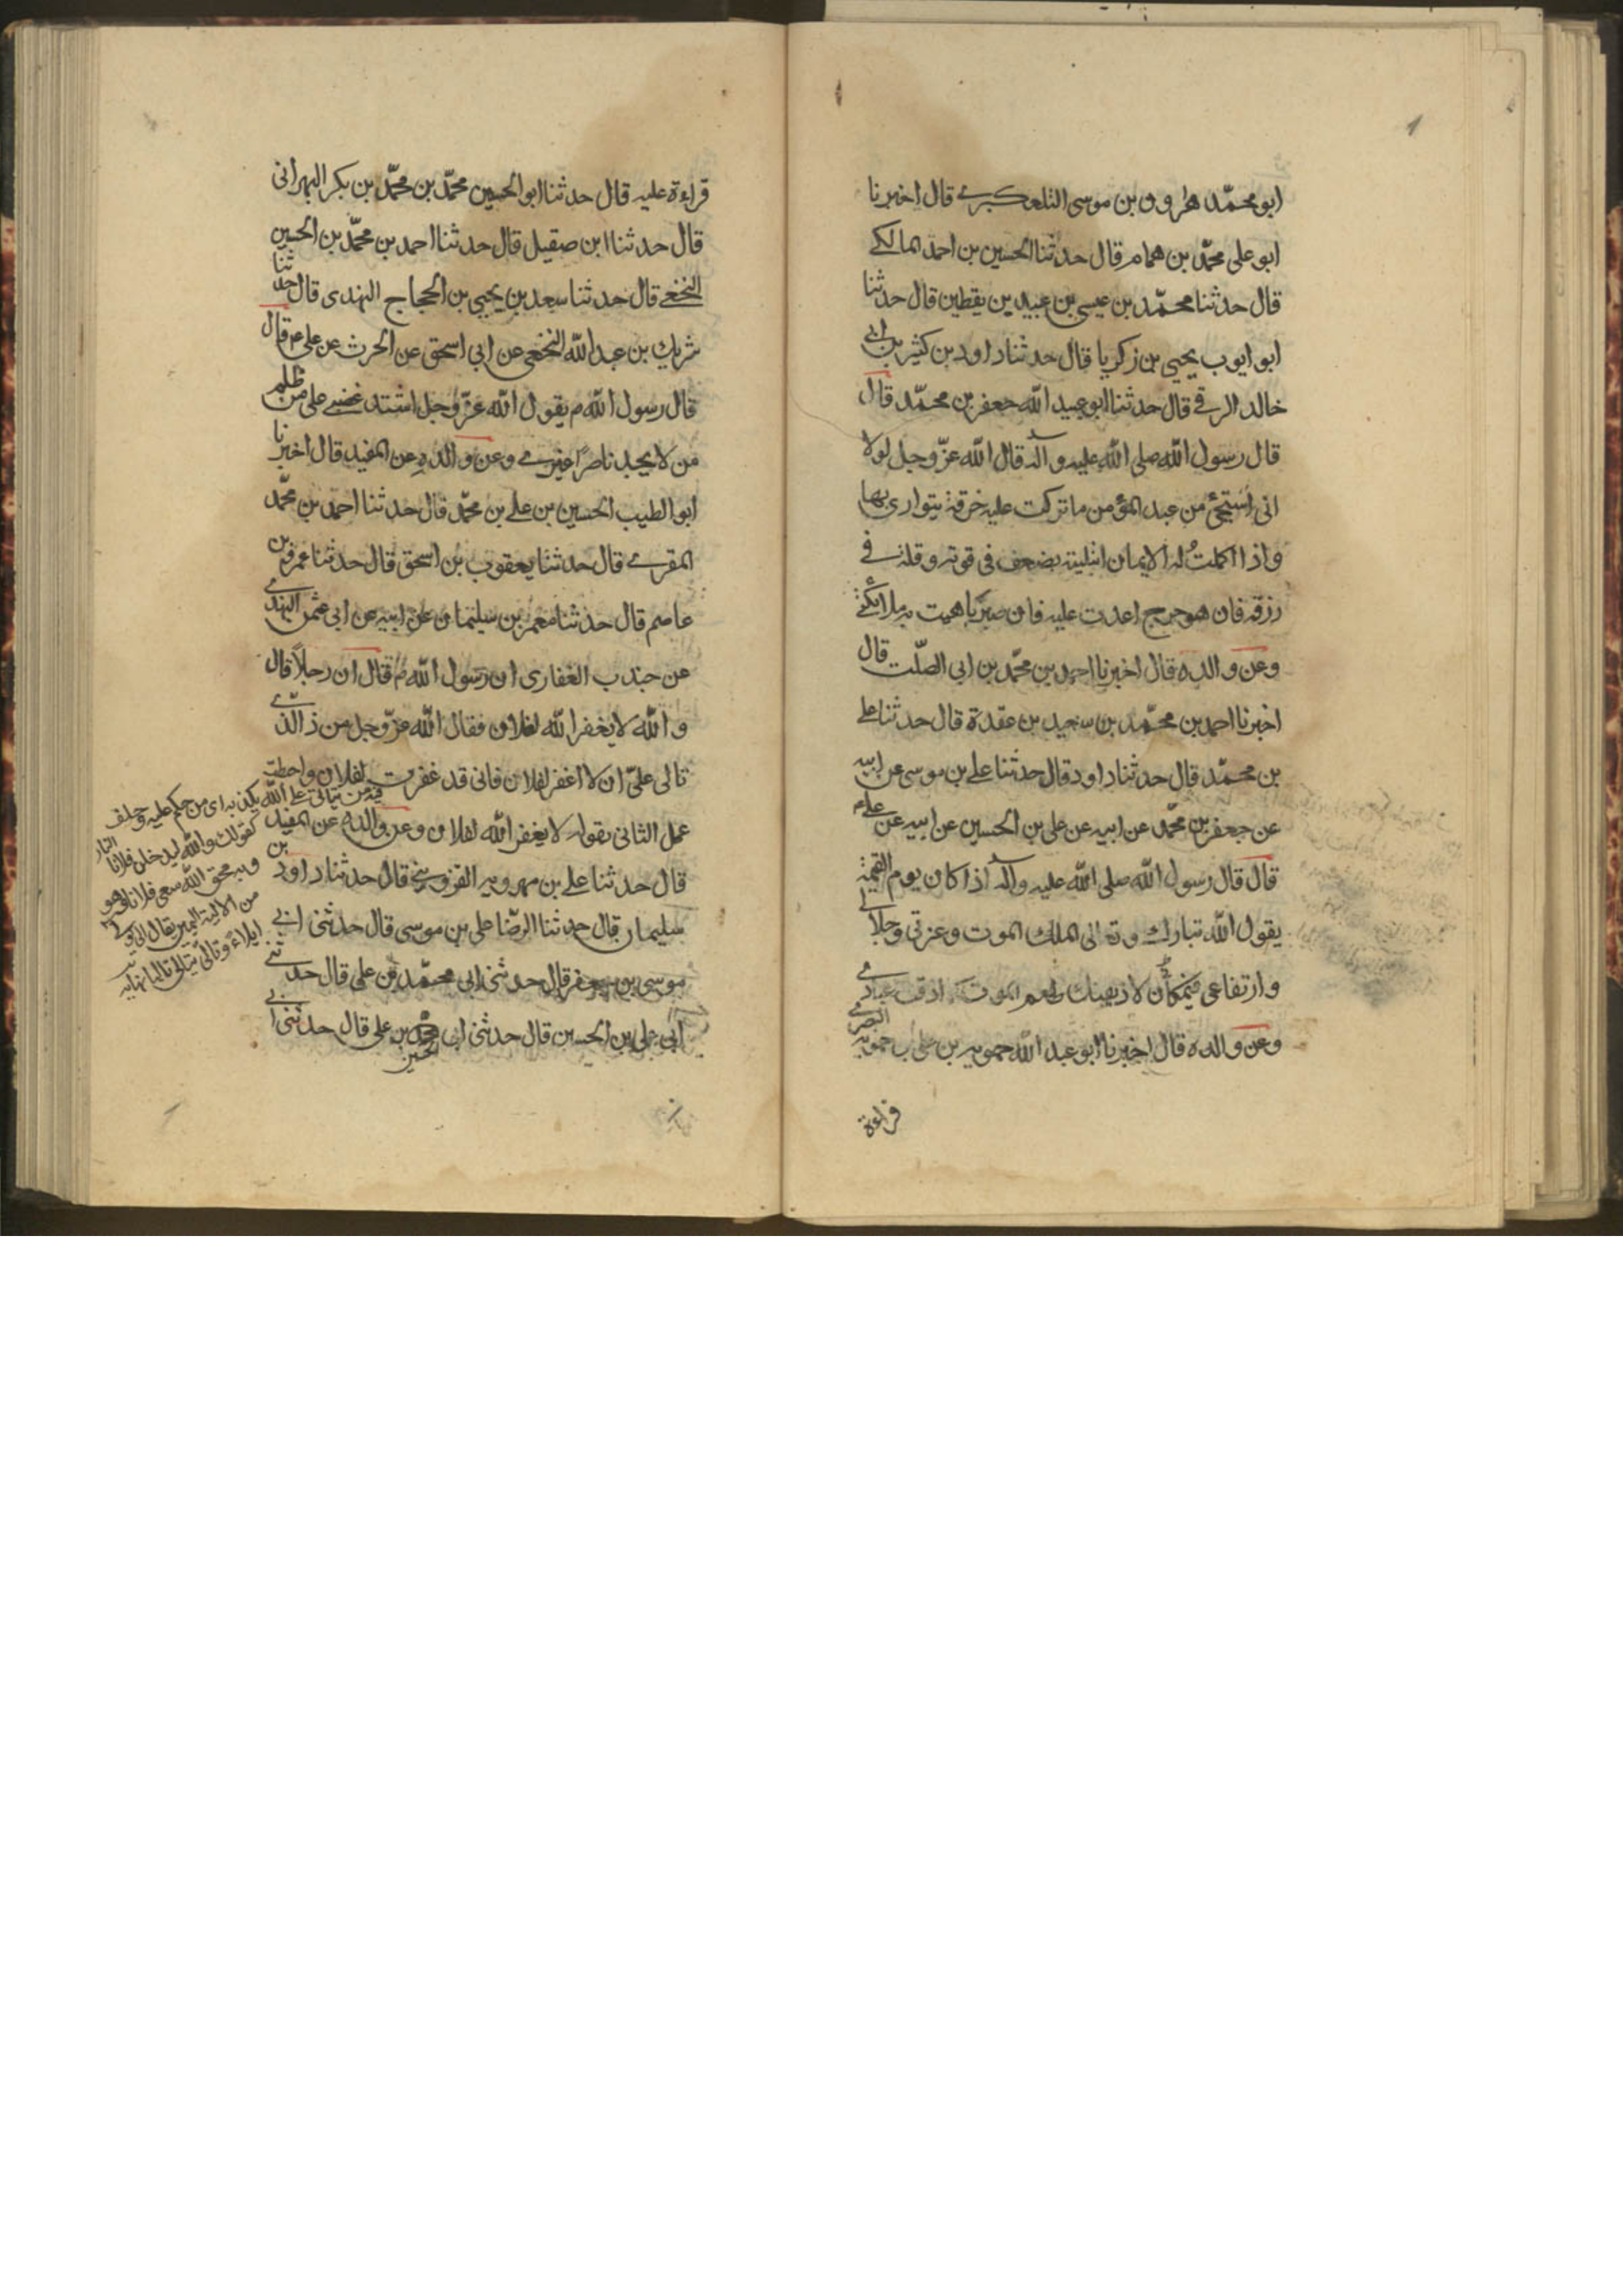 ابو محمّد هرون بن موسى التلعكبرے قال اخبرنا
ابو على محمّد بن همام قال حدثنا الحسين بن احمد المالكے
قال حدثنا محمّد بن عيسى بن عبيد بن يقطين قال حدثنا
ابو ايوب يحيى بن زكريا قال حدثنا داود بن كثير بن ابے
خالد الرقے قال حدثنا ابو عبيد الله جعفر بن محمّد قال
قال رسول الله صلى الله عليه وآله قال الله عزّ وجل لولا
انى استحيى من عبد المؤمن ما تركت عليه خرقة يتوارى بها
واذا اكملتُ له الايمان ابتليته بضعف فى قوته وقلة فے
رزقه فان هو حرج اعدت عليه فان صبر باهيت به ملائكتے
وعن والده قال اخبرنا احمد بن محمّد بن ابى الصلّت قال
اخبرنا احمد بن محمّد بن سعيد بن عقدة قال حدثنا على
بن محمّد قال حدثنا داود قال حدثنا على بن موسى عن ابيه
عن جعفر بن محمّد عن ابيه عن على بن الحسين عن ابيه عن علے ع
قال قال رسول الله صلى الله عليه وآله اذا كان يوم القيمة
يقول الله تبارك وتعالى لملك الموت وعزتى وجلالے
وارتفاعى فى مكانى لاذيقنك طعم الموت كما اذقت عبادے
وعن والده قال اخبرنا ابو عبد الله حمويه بن على بن حمويه البصرے
قراءة
قراءة عليه قال حدثنا ابو الحسين محمّد بن محمّد بن بكر الهزانى
قال حدثنا ابن صقيل قال حدثنا احمد بن محمّد بن الحسين
النخعے قال حدثنا سعد بن يحيى بن الحجاج النهدى قال حدثنا
شريك بن عبد الله النخعى عن ابى اسحق عن الحرث عن على ع قال
قال رسول الله ص يقول الله عزّ وجل اشتد غضبے على من ظلم
من لا يجد ناصرًا غيرے وعن والده عن المفيد قال اخبرنا
ابو الطيب الحسين بن على بن محمّد قال حدثنا احمد بن محمّد
المقرے قال حدثنا يعقوب بن اسحق قال حدثنا عمرو بن
عاصم قال حدثنا معمر بن سليمان عن ابيه عن ابى عثمن النهدے
عن جندب الغفارى ان رسول الله ص قال ان رجلاً قال
والله لا يغفر الله لفلان فقال الله عزّ وجل من ذا الذے
تالى علىّ ان لا اغفر لفلان فانى قد غفرت لفلان واحبطت
عمل الثانى بقوله لا يغفر الله لفلان وعن والده عن المفيد
قال حدثنا على بن مهرويه القزوينے قال حدثنا داود بن
سليمان قال حدثنا الرضا على بن موسى قال حدثنى ابے
موسى بن جعفر قال حدثنى ابى محمّد بن على قال حدثنے
ابى على بن الحسين قال حدثنى ابى الحسين بن على قال حدثنى ابے
فيه من يتالى على الله يكذبه اى من حكم عليه وحلف
كقولك والله ليدخلن فلانا النار
من الالية اليمين يقال الى يولے
ايلاء وتالى يتالى تاليا نهايه